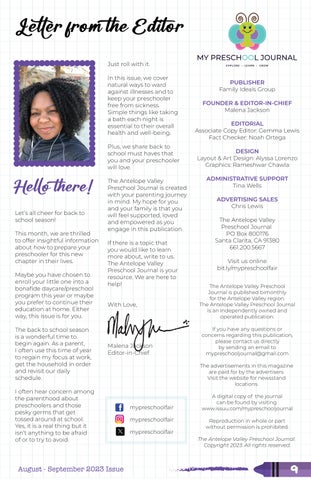 Letter from the Editor
Hello there!
Let's all cheer for back to
school season!
This month, we are thrilled
to offer insightful information
about how to prepare your
preschooler for this new
chapter in their lives.
Maybe you have chosen to
enroll your little one into a
bonafide daycare/preschool
program this year or maybe
you prefer to continue their
education at home. Either
way, this issue is for you.
The back to school season
is a wonderful time to
begin again. As a parent,
I often use this time of year
to regain my focus at work,
get the household in order
and revisit our daily
schedule.
I often hear concern among
the parenthood about
preschoolers and those
pesky germs that get
tossed around at school.
Yes, it is a real thing but it
isn't anything to be afraid
of or to try to avoid.
Just roll with it.
In this issue, we cover
natural ways to ward
against illnesses and to
keep your preschooler
free from sickness.
Simple things like taking
a bath each night is
essential to their overall
health and well-being.
Plus, we share back to
school must haves that
you and your preschooler
will love.
The Antelope Valley
Preschool Journal is created
with your parenting journey
in mind. My hope for you
and your family is that you
will feel supported, loved
and empowered as you
engage in this publication.
If there is a topic that
you would like to learn
more about, write to us.
The Antelope Valley
Preschool Journal is your
resource. We are here to
help!
With Love,
Malena Jackson
Editor-in-Chief
mypreschoolfair
mypreschoolfair
mypreschoolfair
MY PRESCHOOL JOURNAL
EXPLORE · LEARN · GROW
PUBLISHER
Family Ideals Group
FOUNDER & EDITOR-IN-CHIEF
Malena Jackson
EDITORIAL
Associate Copy Editor: Gemma Lewis
Fact Checker: Noah Ortega
DESIGN
Layout & Art Design: Alyssa Lorenzo
Graphics: Rameshwar Chawla
ADMINISTRATIVE SUPPORT
Tina Wells
ADVERTISING SALES
Chris Lewis
The Antelope Valley
Preschool Journal
PO Box 801176
Santa Clarita, CA 91380
661.200.5667
Visit us online
bit.ly/mypreschoolfair
The Antelope Valley Preschool
Journal is published bimonthly
for the Antelope Valley region.
The Antelope Valley Preschool Journal
is an independently owned and
operated publication.
If you have any questions or
concerns regarding this publication,
please contact us directly
by sending an email to
mypreschooljournal@gmail.com
The advertisements in this magazine
are paid for by the advertisers.
Visit the website for newsstand
locations.
A digital copy of the journal
can be found by visiting
www.issuu.com/mypreschooljournal
Reproduction in whole or part
without permission is prohibited.
The Antelope Valley Preschool Journal
Copyright 2023. All rights reserved.
August - September 2023 Issue
9